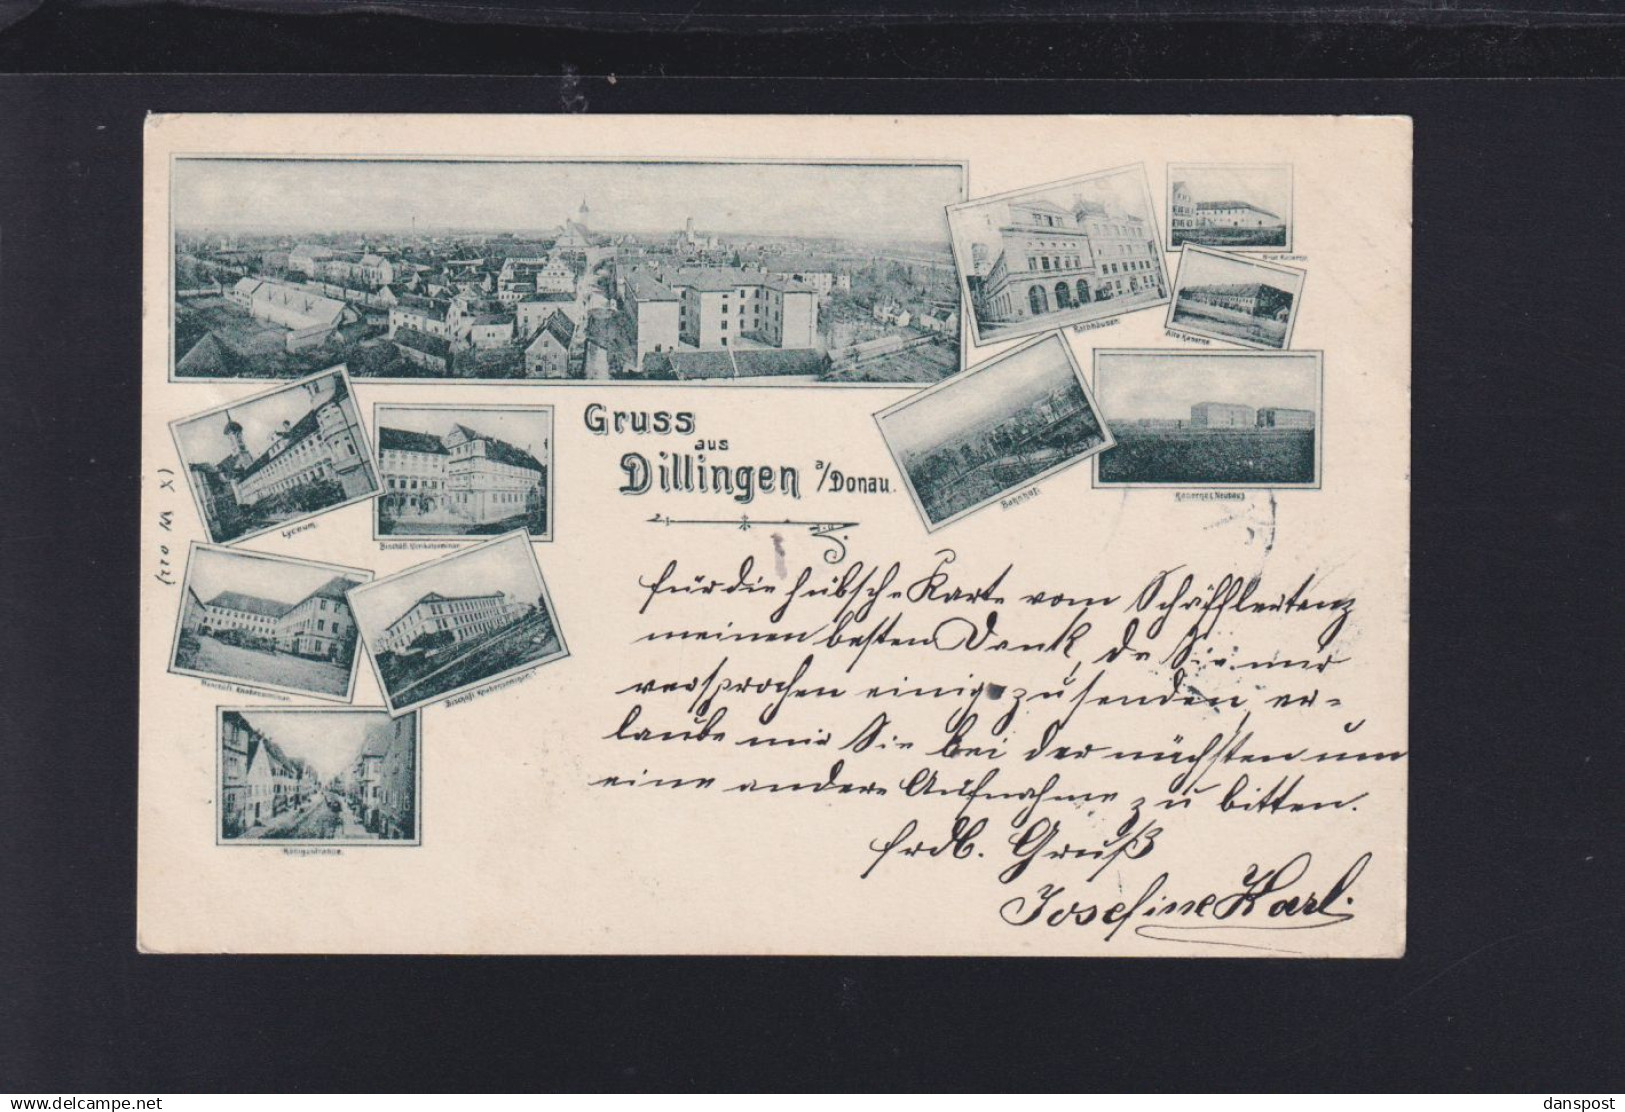 Gruss
aus
Dillingen a/Donau.
Rathhäuser.
Neue Kaserne.
Alte Kaserne.
Bahnhof.
Kaserne (Neubau)
Lyceum.
Bischöfl. Klerikalseminar.
Bischöfl. Knabenseminar.
Bischöfl. Knabenseminar
Königsstrasse.
(X W 022)
für die hübsche Karte vom Schäfflertanz
meinen besten Dank, da Sie mir
versprochen einige zu senden, er-
laube mir Sie bei der nächsten um
eine andere Aufnahme zu bitten.
frdl. Gruß
Josefine Karl.
danspost